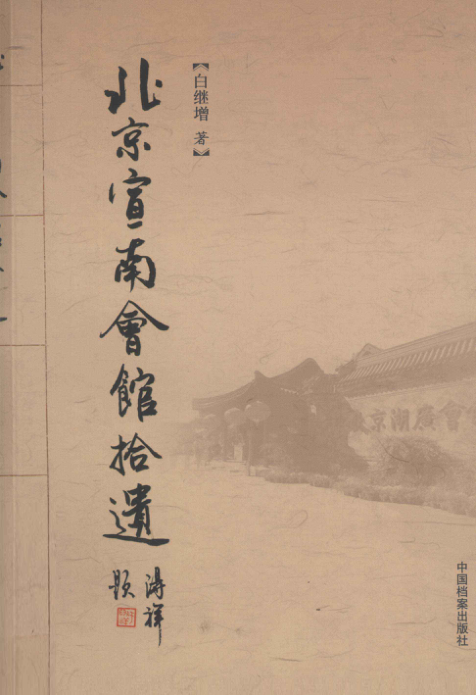 【白继增 著】
北京宣南會館拾遺
祥
题
京湖廣會
中国档案出版社